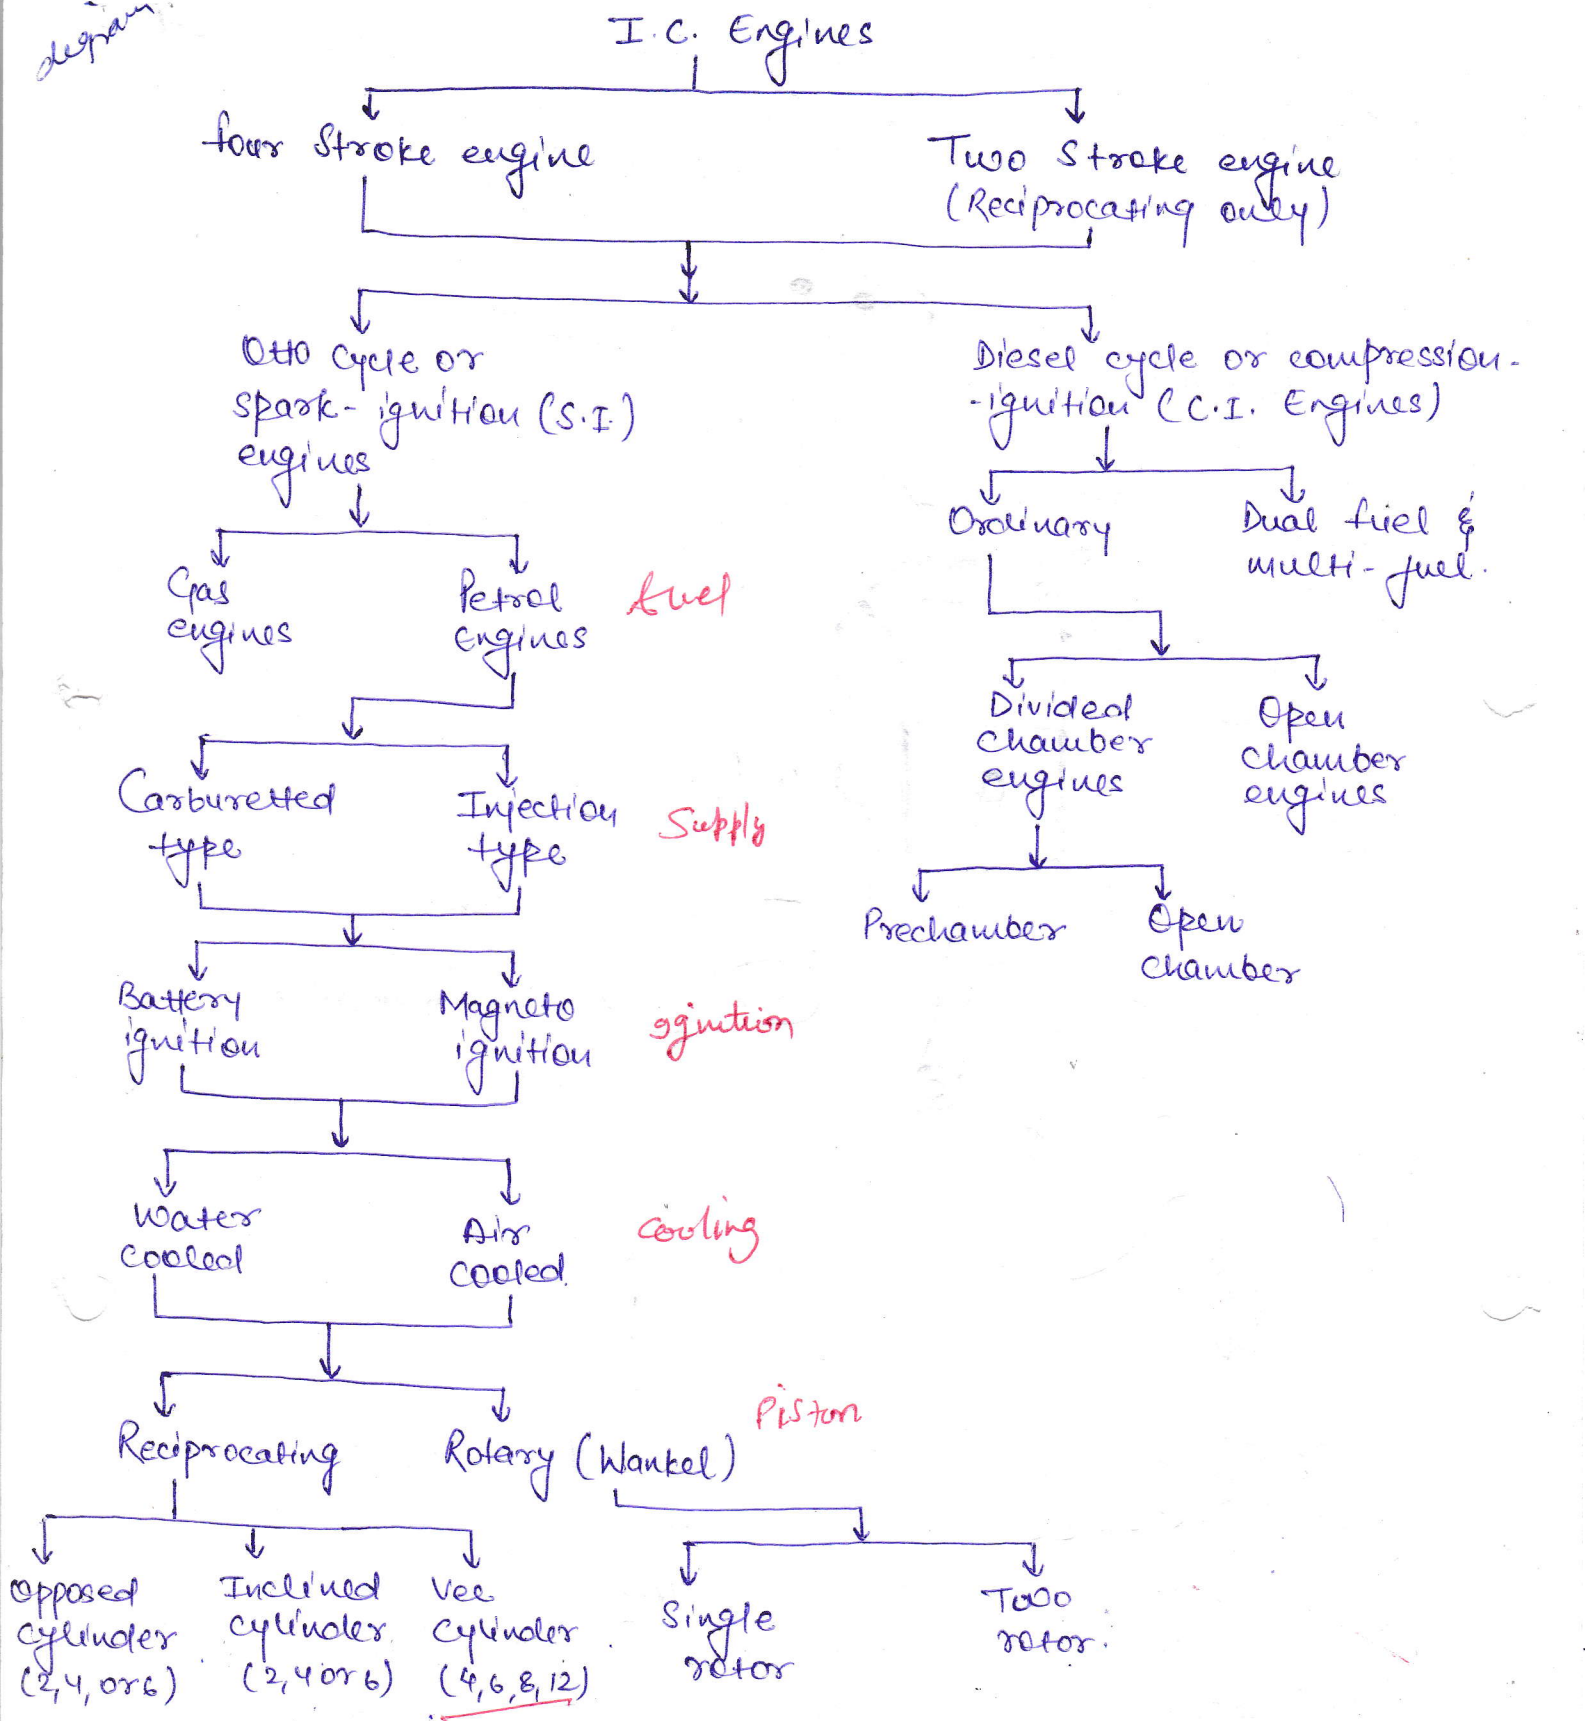 diagram
I.C. Engines
four Stroke engine
Two Stroke engine
(Reciprocating only)
Otto Cycle or
spark-ignition (S.I.)
engines
Diesel cycle or compression-
-ignition (C.I. Engines)
Ordinary
Dual fuel &
multi-fuel.
Gas
engines
Petrol
Engines
fuel
Divided
chamber
engines
Open
chamber
engines
Carburetted
type
Injection
type
Supply
Prechamber
Open
chamber
Battery
ignition
Magneto
ignition
ignition
Water
cooled
Air
cooled
cooling
Reciprocating
Rotary (Wankel)
Piston
Opposed
cylinder
(2,4, or 6)
Inclined
cylinder
(2,4 or 6)
Vee
cylinder
(4,6,8,12)
Single
rotor
Two
rotor.